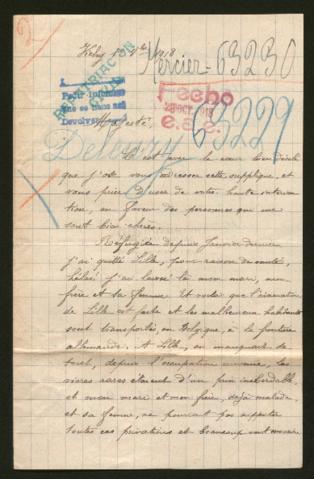 2
1918
Mercier - 63230
REPATRIACION
Fecho
28 OCT. 1918
63229
Majesté,
Delœuzy
C'est avec le cœur bien
que j'ose vous adresser cette supplique, et
vous prier d'user de votre haute interven
tion, en faveur des personnes qui me
sont bien chères.
Réfugiée depuis Janvier dernier
j'ai quitté Lille, pour raison de santé,
hélas! j'ai laissé là mon mari, mon
frère et sa femme. Et voilà que l'évacuation
de Lille est faite et les malheureux habitants
sont transportés, en Belgique, à la frontière
allemande. A Lille, on manquait de
tout, depuis l'occupation ennemie, les
vivres rares étaient d'un prix inabordable
et mon mari et mon frère, déjà malade
et sa femme, ne pourront pas supporter
toutes ces privations et beaucoup ont